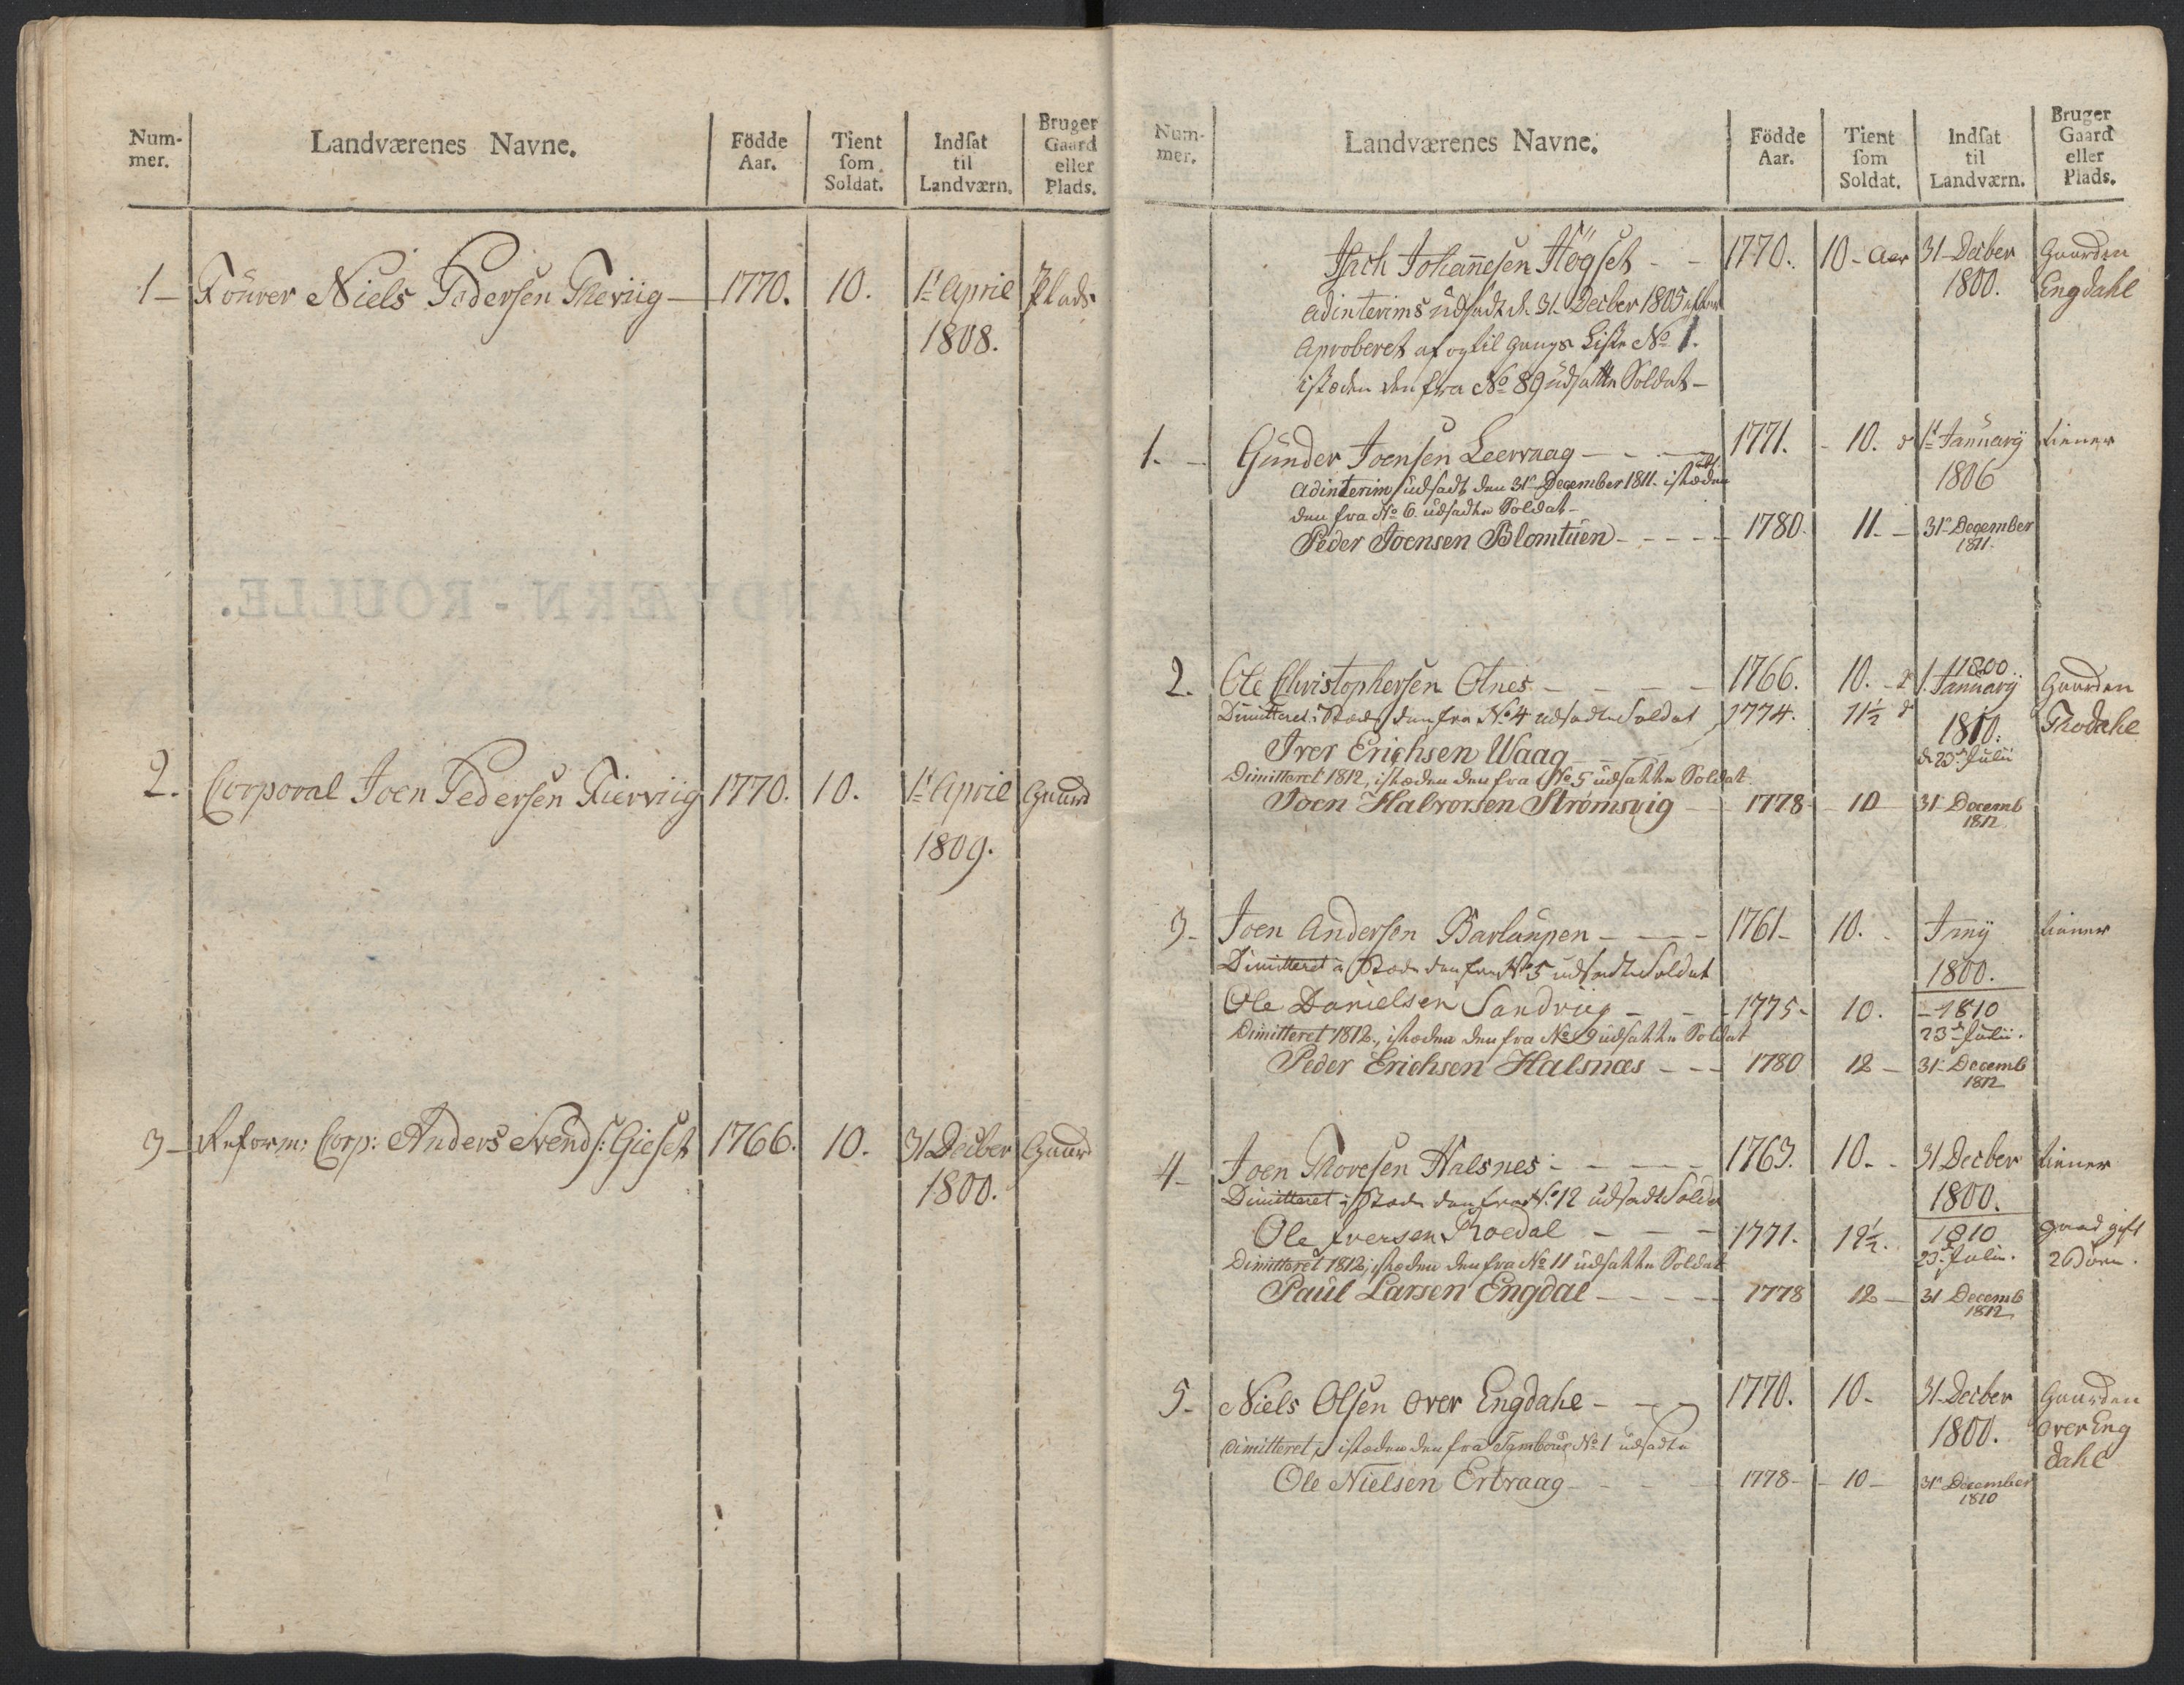 Num-
mer.
Landværenes Navne.
Födde
Aar.
Tient
som
Soldat.
Indsat
til
Landværn.
Bruger
Gaard
eller
Plads.
1 - Fourer Niels Pedersen - 1770. 10. 1t April Plads
1808.
2. Corporal Joen Pedersen 1770. 10. 1t April Gaard
1809.
3 - Reform: Corp: Anders Svends: Gieset 1766. 10. 31 Decber Gaard
1800.
Num-
mer.
Landværenes Navne.
Födde
Aar.
Tient
som
Soldat.
Indsat
til
Landværn.
Bruger
Gaard
eller
Plads.
Isach Johannesen Högset - - 1770. 10 - Aar 31 Decber Gaarden
adinterims udsadt d. 31 Decber 1805 efter 1800. Engdahl
Aproberet af og til gangs Liste No 1.
isteden den fra No 89 udsatte Soldat -
1. - Gunder Joensen Leervaag - - - 1771. - 10. 1t Januarij tiener
adinterims udsadt den 31 December 1811. isteden 1806
den fra No 6. udsadte Soldat -
Peder Joensen Blomtuen - - - - - 1780. 11. - 31 December
1811.
2. Ole Christophersen Otnes - - - - 1766. 10. 1. Januarij 1800. Gaarden
Dimitteret i Stæden den fra No 4 udsadte Soldat 1774. 11½ 1810. Thodahl
Iver Erichsen Waag d. 23 Julii
Dimitteret 1812, isteden den fra No 5 udsatte Soldat
Joen Halvorsen Strømsvig - 1778 - 10 31 Decemb
1812.
3 - Joen Andersen Barlaupen - - - - 1761 - 10. tiener
Dimitteret i Stæden den fra No 5 udsadte Soldat 1800.
Ole Danielsen Sandviig - - 1775 - 10. - 1810
Dimitteret 1812, isteden den fra No 9 udsatte Soldat 23 Julii.
Peder Erichsen Halsnæs - - - 1780 12 - 31 Decemb
1812
4 - Joen Thoresen Halsnes - - - - - 1763. 10. - 31 Decber tiener
Dimitteret i Stæden den fra No 12 udsadt Soldat 1800.
Ole Iversen Roedal - - - 1771. 12½. 1810 Gaard gift
Dimitteret 1812, isteden den fra No 11 udsatte Soldat 23 Julii. 2 Börn.
Paul Larsen Engdal - - - - - 1778 12 - 31 Decemb
1812
5 - Niels Olsen over Engdahl - - - 1770. 10 - 31 Decber Gaarden
dimitteret, isteden den fra Tambour No 1 udsadte 1800. over Eng
dahl
Ole Nielsen Ertvaag - - - 1778 - - 10 - 31 December
1810